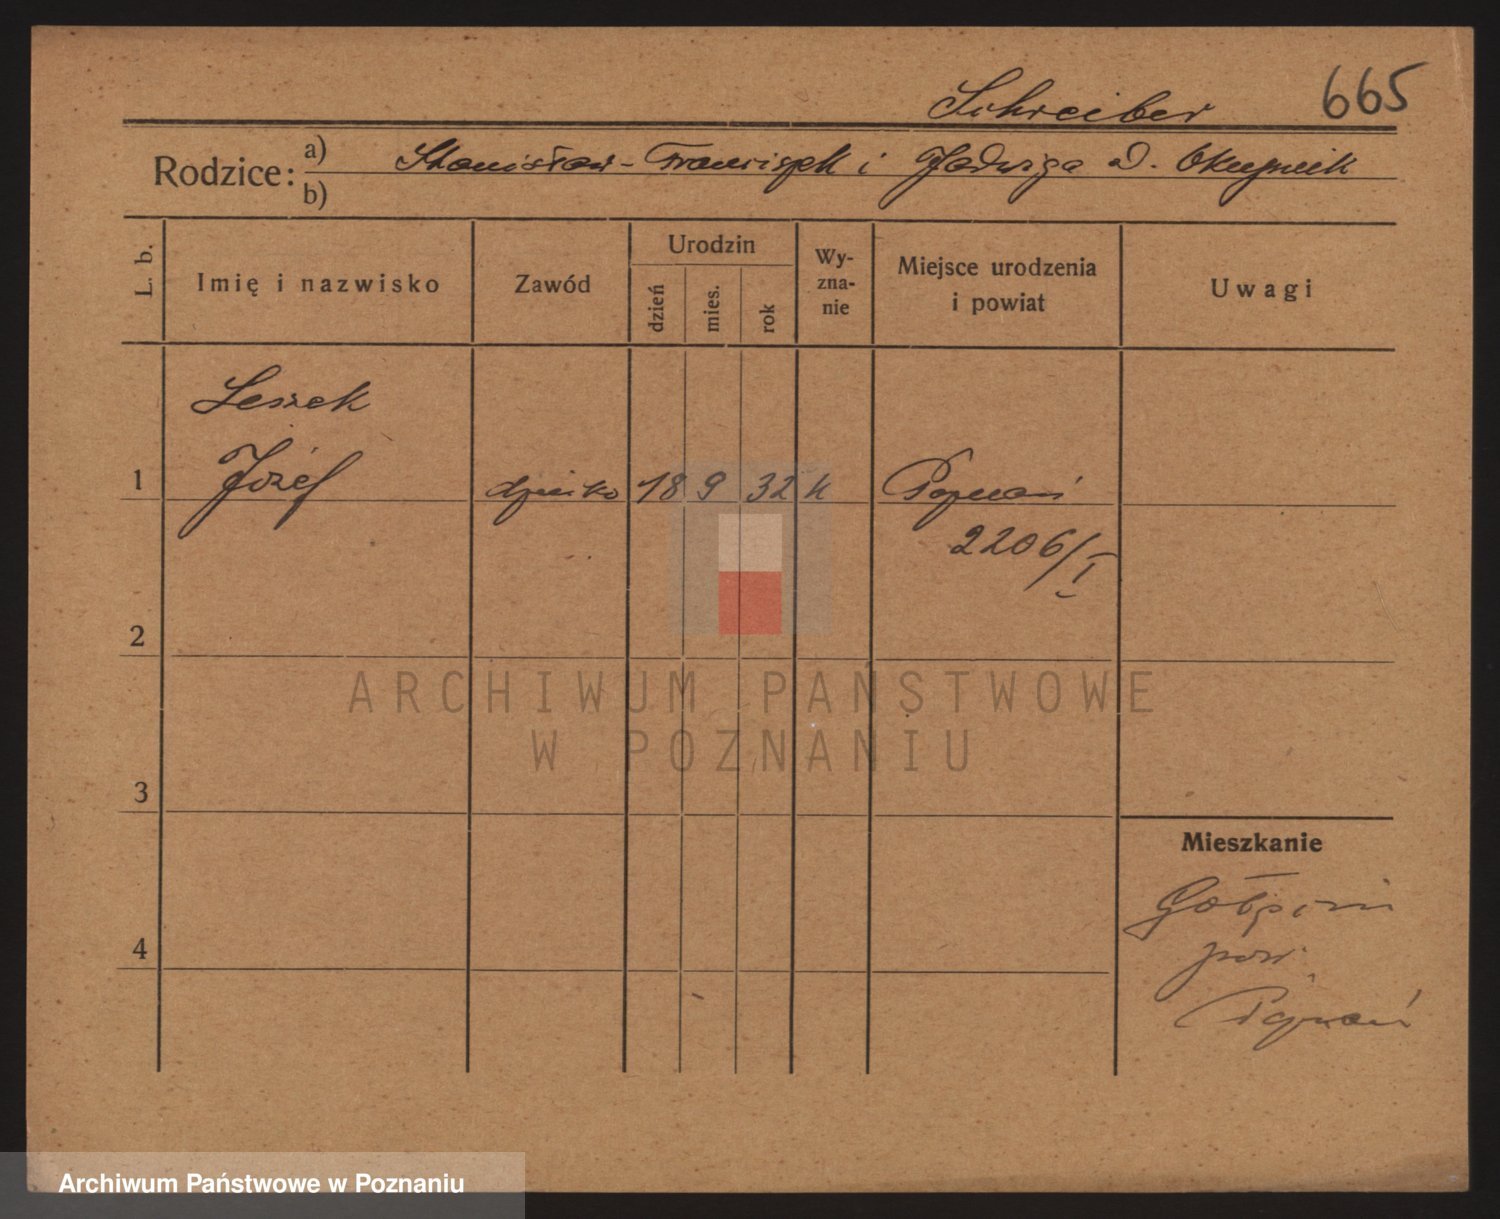 Schreiber 665
Rodzice: a) Stanisław-Franciszek i Jadwiga D.
b)
L. b. Imię i nazwisko Zawód Urodzin dzień mies. rok Wy-zna-nie Miejsce urodzenia i powiat Uwagi
Leszek
1 Józef dziecko 18 9 32 k Poznań
2206/I
2
ARCHIWUM PAŃSTWOWE
W POZNANIU
3
Mieszkanie
4
pow.
Poznań
Archiwum Państwowe w Poznaniu